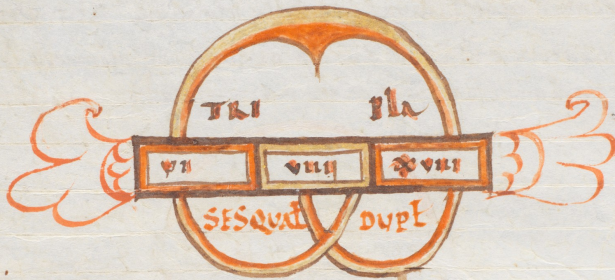 TRI PLA
VI VIIII XVIII
SESQUAL DUPL